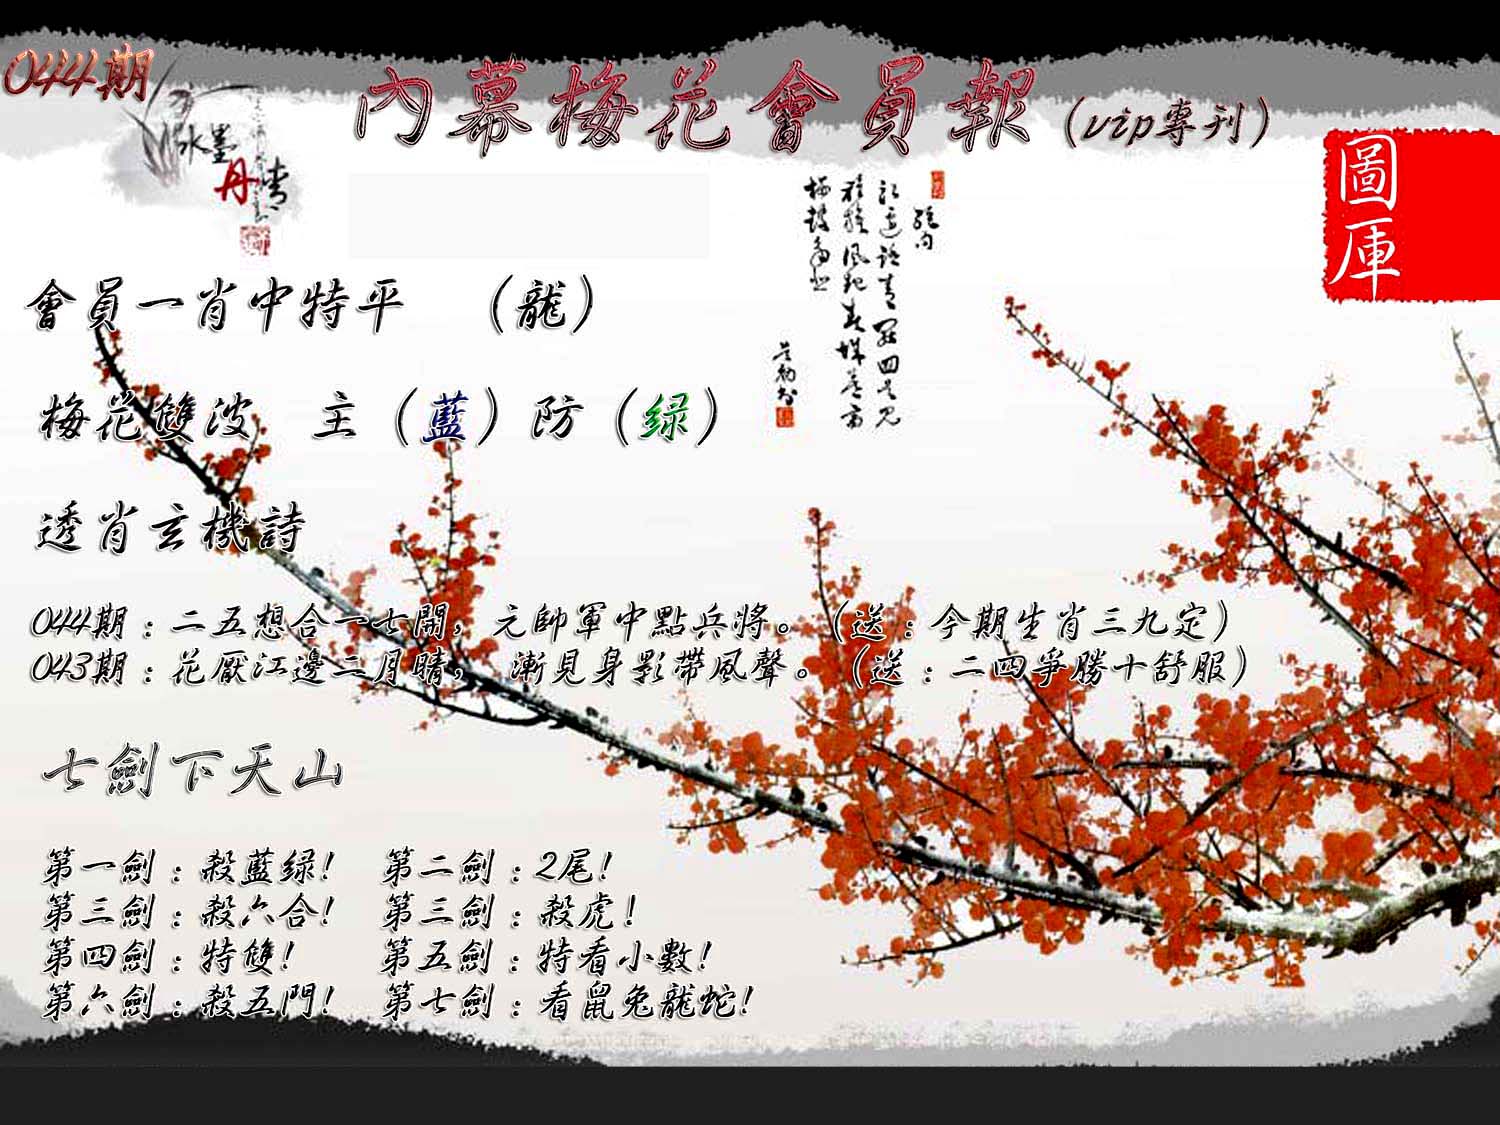 044期
內幕梅花會員報(vip專刊)
水墨
丹青
圖庫
會員一肖中特平 （龍）
梅花雙波 主（藍）防（绿）
透肖玄機詩
044期：二五想合一七開，元帥軍中點兵將。（送：今期生肖三九定）
043期：花厭江邊二月晴， 漸見身影帶風聲。（送：二四爭勝十舒服）
七劍下天山
第一劍：殺藍绿！ 第二劍：2尾！
第三劍：殺六合！ 第三劍：殺虎！
第四劍：特雙！ 第五劍：特看小數！
第六劍：殺五門！ 第七劍：看鼠兔龍蛇！